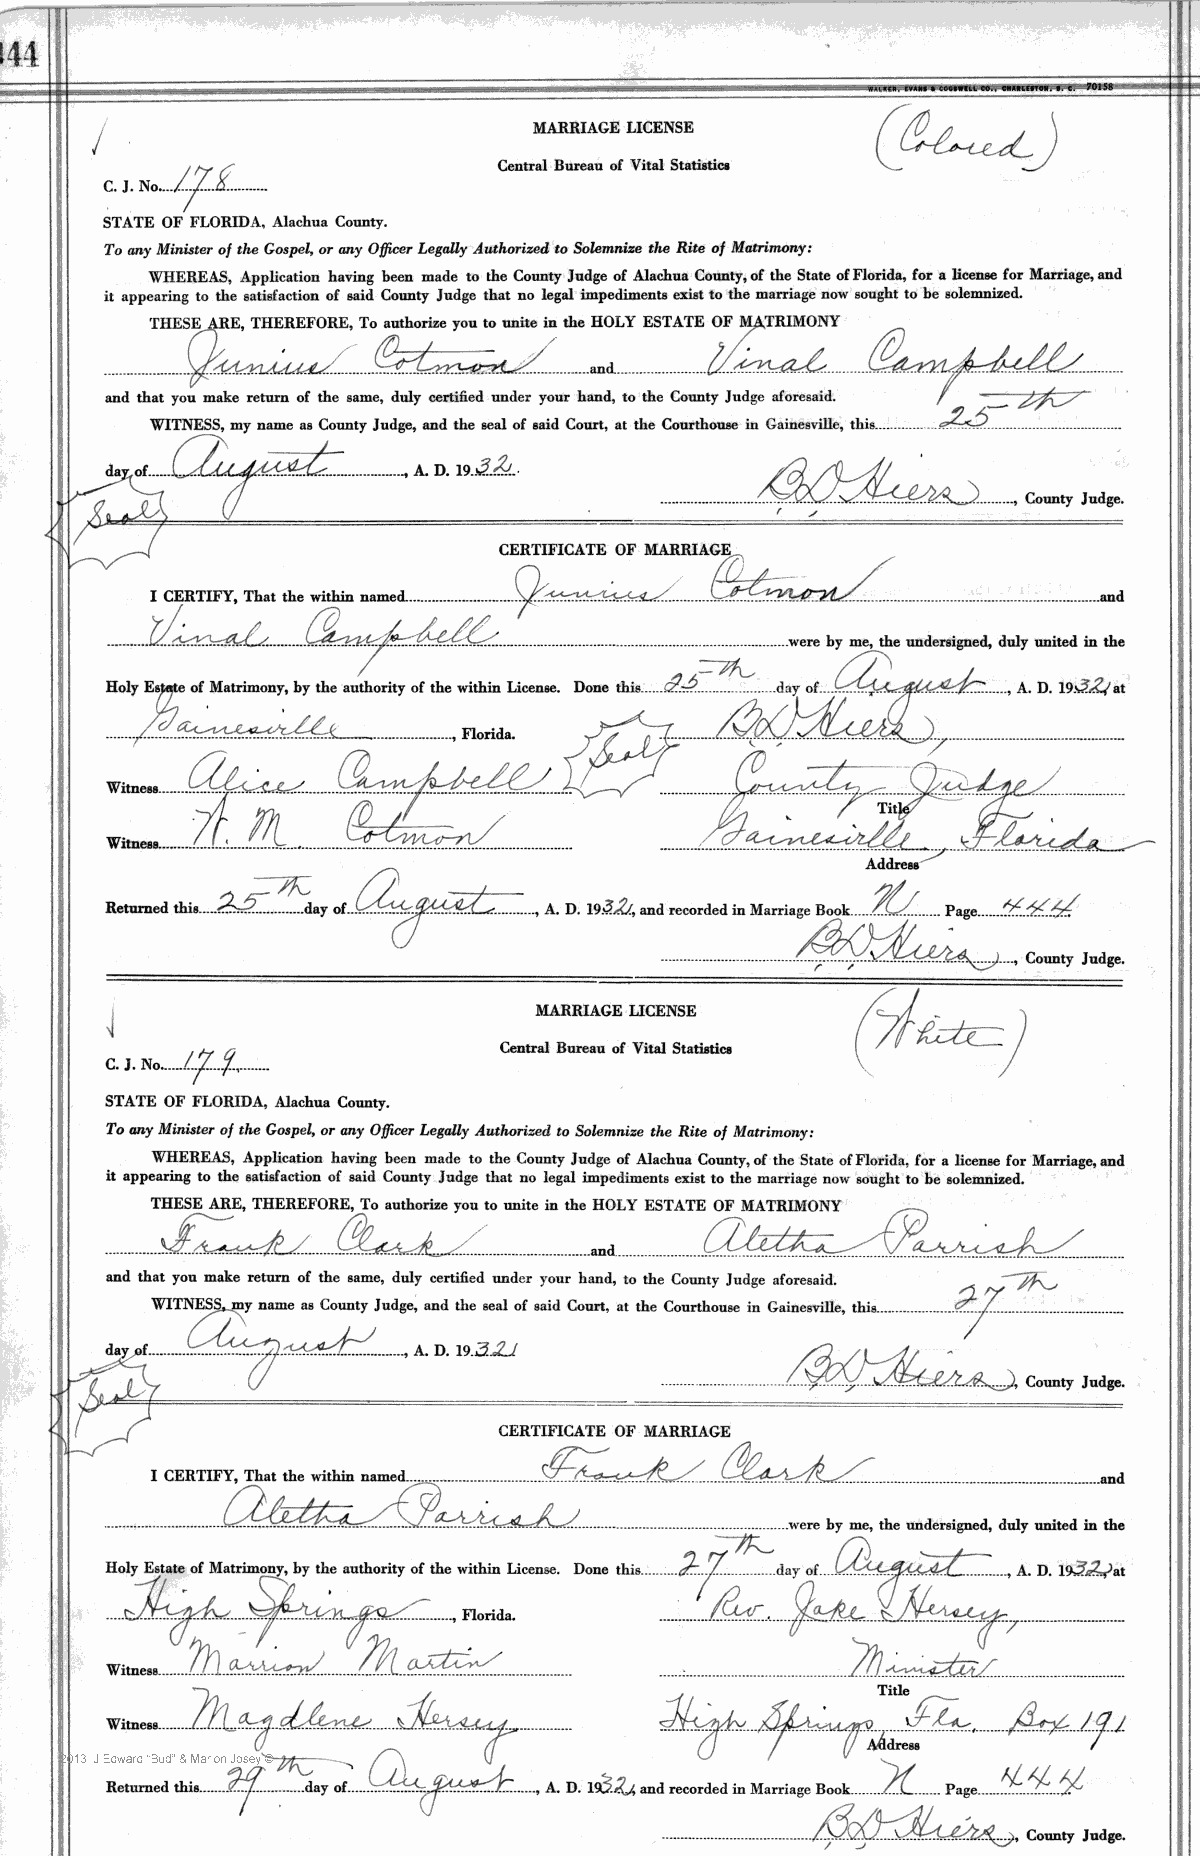 444
WALKER, EVANS & COGSWELL CO., CHARLESTON, S. C. 70158
MARRIAGE LICENSE
(Colored)
Central Bureau of Vital Statistics
C. J. No. 178
STATE OF FLORIDA, Alachua County.
To any Minister of the Gospel, or any Officer Legally Authorized to Solemnize the Rite of Matrimony:
WHEREAS, Application having been made to the County Judge of Alachua County, of the State of Florida, for a license for Marriage, and
it appearing to the satisfaction of said County Judge that no legal impediments exist to the marriage now sought to be solemnized.
THESE ARE, THEREFORE, To authorize you to unite in the HOLY ESTATE OF MATRIMONY
Junius Cotmon and Vinal Campbell
and that you make return of the same, duly certified under your hand, to the County Judge aforesaid.
WITNESS, my name as County Judge, and the seal of said Court, at the Courthouse in Gainesville, this 25th
day of August, A. D. 1932.
B D Hiers, County Judge.
Seal
CERTIFICATE OF MARRIAGE
I CERTIFY, That the within named Junius Cotmon and
Vinal Campbell were by me, the undersigned, duly united in the
Holy Estate of Matrimony, by the authority of the within License. Done this 25th day of August, A. D. 1932, at
Gainesville, Florida. B D Hiers,
Seal
Witness Alice Campbell County Judge
Title
Witness W. M. Cotmon Gainesville, Florida
Address
Returned this 25th day of August, A. D. 1932, and recorded in Marriage Book N Page 444
B D Hiers, County Judge.
MARRIAGE LICENSE
(White)
Central Bureau of Vital Statistics
C. J. No. 179
STATE OF FLORIDA, Alachua County.
To any Minister of the Gospel, or any Officer Legally Authorized to Solemnize the Rite of Matrimony:
WHEREAS, Application having been made to the County Judge of Alachua County, of the State of Florida, for a license for Marriage, and
it appearing to the satisfaction of said County Judge that no legal impediments exist to the marriage now sought to be solemnized.
THESE ARE, THEREFORE, To authorize you to unite in the HOLY ESTATE OF MATRIMONY
Frank Clark and Aletha Parrish
and that you make return of the same, duly certified under your hand, to the County Judge aforesaid.
WITNESS, my name as County Judge, and the seal of said Court, at the Courthouse in Gainesville, this 27th
day of August, A. D. 1932
B D Hiers, County Judge.
Seal
CERTIFICATE OF MARRIAGE
I CERTIFY, That the within named Frank Clark and
Aletha Parrish were by me, the undersigned, duly united in the
Holy Estate of Matrimony, by the authority of the within License. Done this 27th day of August, A. D. 1932, at
High Springs, Florida. Rev. Jake Hersey,
Witness Marrion Martin Minister
Title
Witness Magdlene Hersey High Springs, Fla. Box 191
Address
2013 J Edward "Bud" & Marion Josey ©
Returned this 29th day of August, A. D. 1932, and recorded in Marriage Book N Page 444
B D Hiers, County Judge.